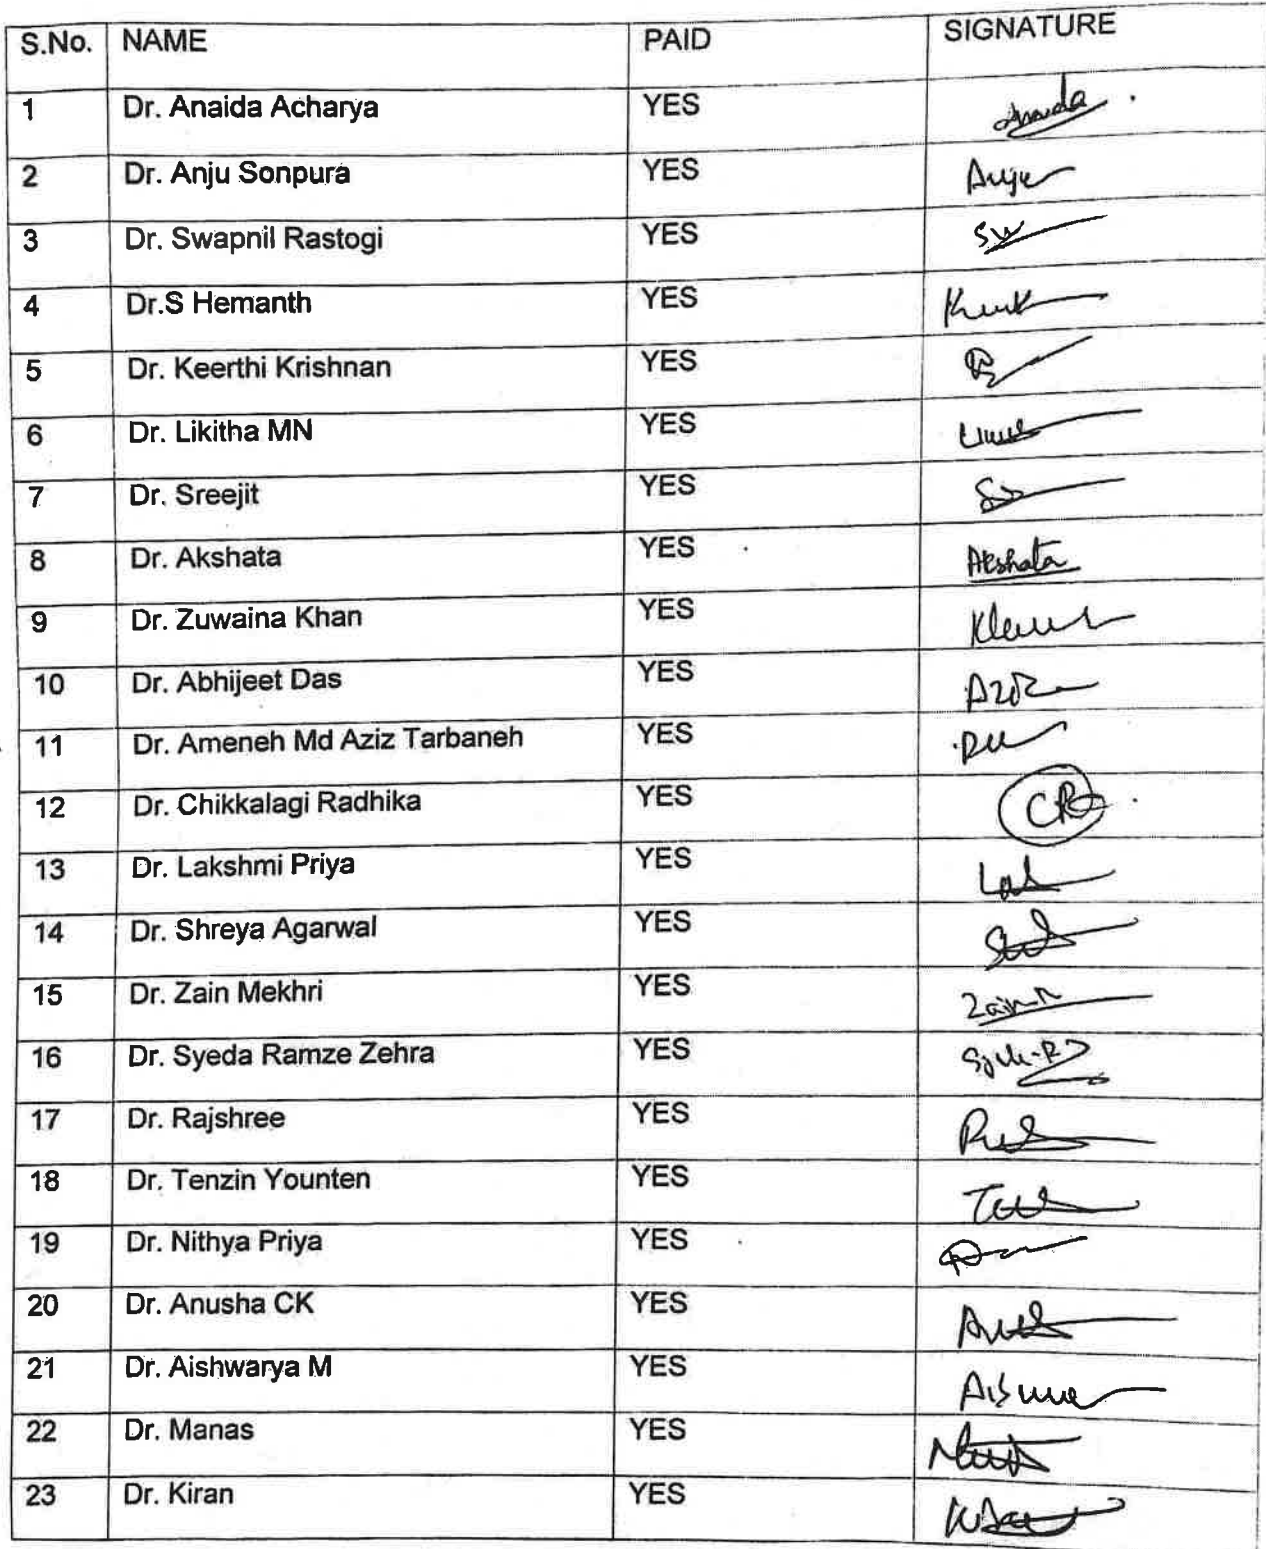 S.No. NAME PAID SIGNATURE
1 Dr. Anaida Acharya YES Anaida
2 Dr. Anju Sonpura YES Anju
3 Dr. Swapnil Rastogi YES SW
4 Dr.S Hemanth YES
5 Dr. Keerthi Krishnan YES
6 Dr. Likitha MN YES
7 Dr. Sreejit YES
8 Dr. Akshata YES Akshata
9 Dr. Zuwaina Khan YES
10 Dr. Abhijeet Das YES
11 Dr. Ameneh Md Aziz Tarbaneh YES
12 Dr. Chikkalagi Radhika YES
13 Dr. Lakshmi Priya YES
14 Dr. Shreya Agarwal YES
15 Dr. Zain Mekhri YES
16 Dr. Syeda Ramze Zehra YES
17 Dr. Rajshree YES
18 Dr. Tenzin Younten YES
19 Dr. Nithya Priya YES
20 Dr. Anusha CK YES
21 Dr. Aishwarya M YES
22 Dr. Manas YES
23 Dr. Kiran YES